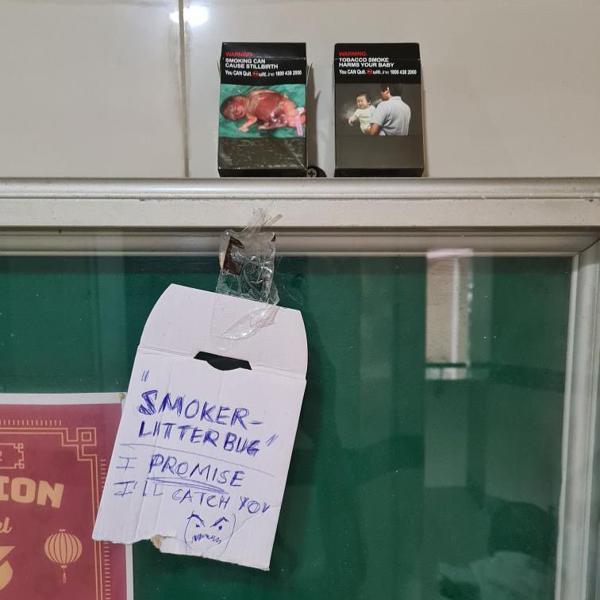 WARNING:
SMOKING CAN
CAUSE STILLBIRTH
You CAN Quit. QuitLine 1800 438 2000
WARNING:
TOBACCO SMOKE
HARMS YOUR BABY
You CAN Quit. QuitLine 1800 438 2000
"SMOKER-
LIITTERBUG"
I PROMISE
I'LL CATCH YOU
ION
el